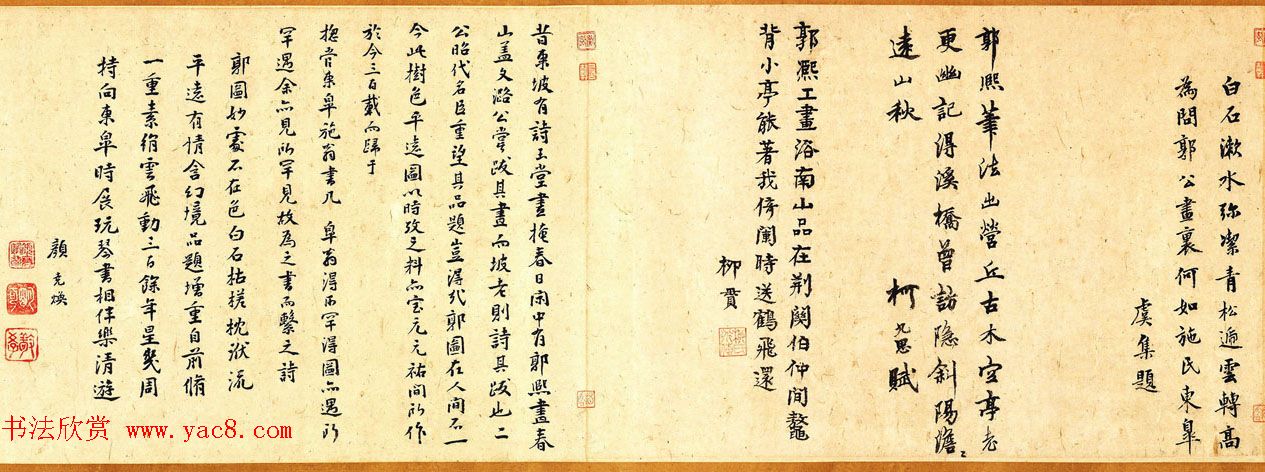 白石漱水弥潔青松遍雲轉高
為問郭公畫裏何如施民東皐
虞集題
郭熙筆法出營丘古木空亭老
更幽記得溪橋曾訪隐斜陽澹〻
遠山秋
柯九思賦
郭熈工畫浴南山品在荆関伯仲間鼇
背小亭能著我倚闌時送鶴飛還
柳貫
昔東坡有詩玉堂晝掩春日閑中有郭熙畫春
山盖文潞公嘗跋其畫而坡老則詩其跋也二
公昭代名臣重望其品題豈得我郭圖在人間不一
今此樹色平逺圖以時攷之料亦宝元元祐間所作
於今三百載而歸于
東皐施翁書几 皐翁得而罕得圖亦遇所
罕遇余亦見所罕見故為之書而繫之詩
郭圖妙處不在色白石枯槎枕湍流
平逺有情含幻境品題增重自前脩
一重素絹雲飛動三百餘年星幾周
持向東皐時展玩琴書相伴樂清遊
顔堯煥
书法欣赏 www.yac8.com